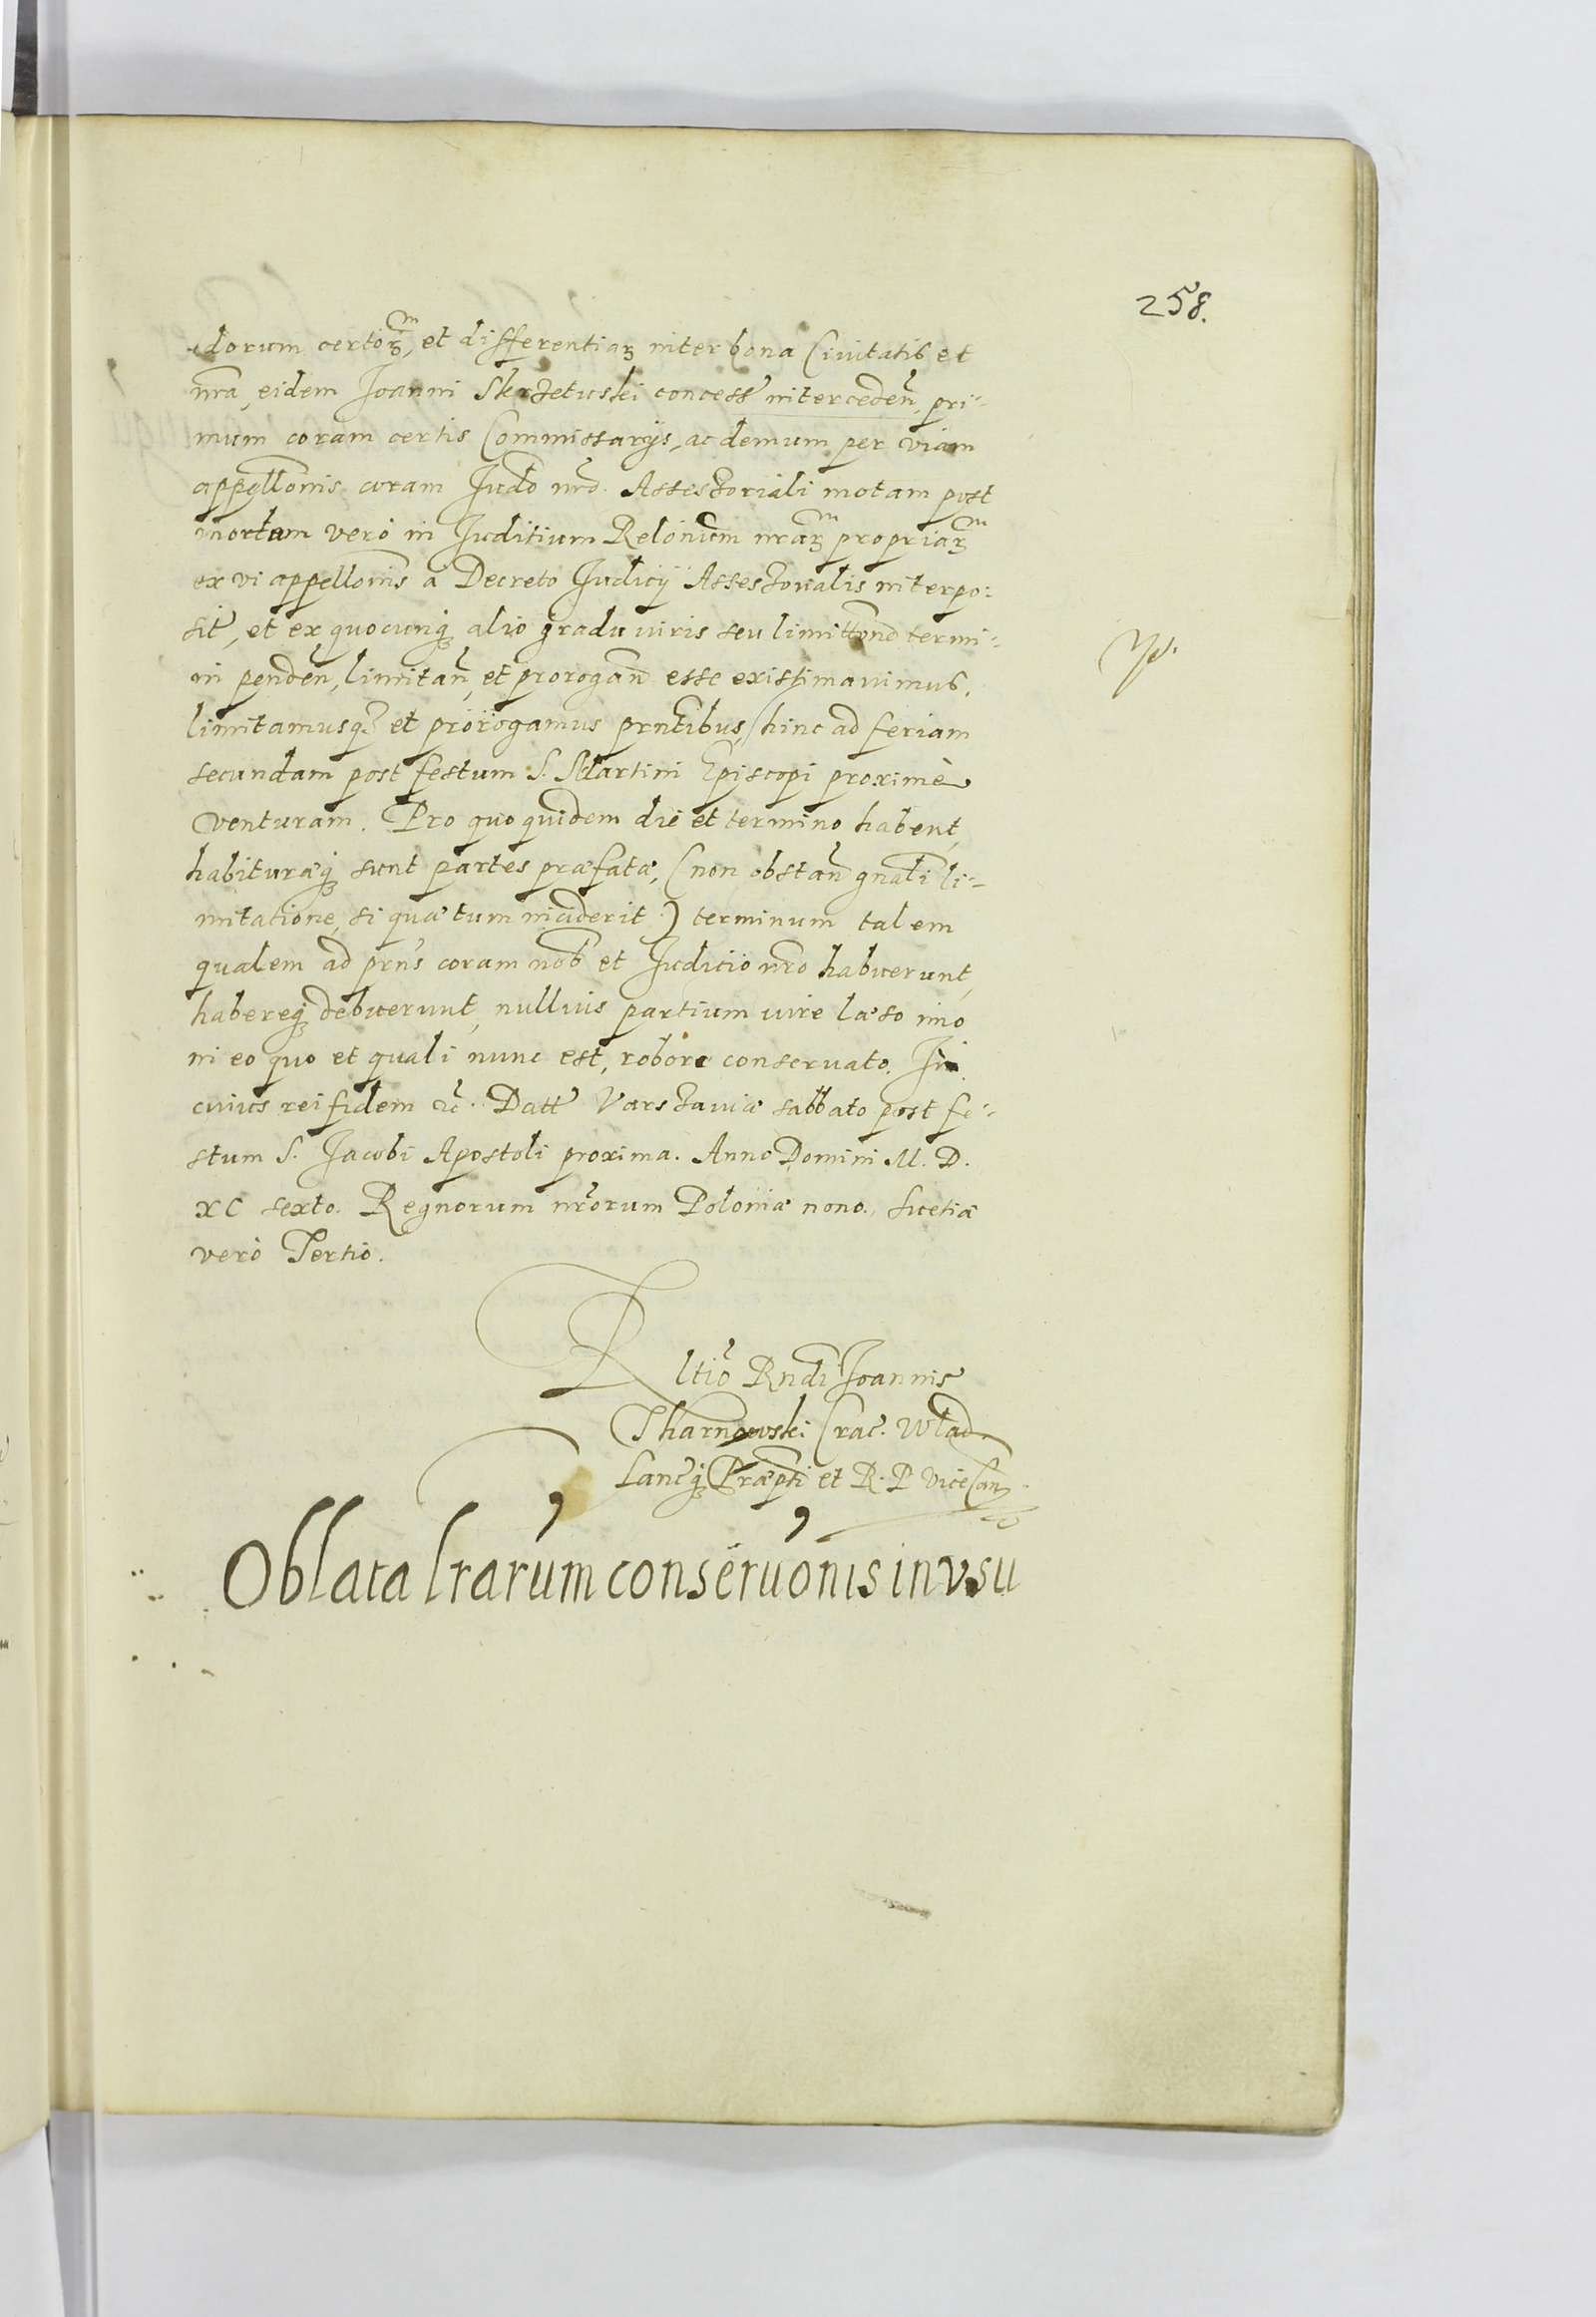 258.
dorum certoꝝ, et differentiaꝝ inter bona Ciuitatis et
nrã, eidem Joanni Skrzetuski concess intercedeñ, pri-
mum coram certis Commissarijs, ac demum per viam
appellõnis coram Judõ nrõ Assessoriali motam post
mortem verò in Juditium Relõnum nraꝝ propriaꝝ
ex vi appellõnis à Decreto Judicij Assessorialis interpo:
sit, et ex quocunq alio gradu iuris seu limittõnũ termi-
ni pendeñ, limitañ, et prorogañ esse existimauimus,
limitamusq et prorogamus prntibus, hinc ad feriam
secundam post festum S. Martini Episcopi proximè
venturam. Pro quo quidem die et termino habent,
habituræq sunt partes præfatæ, (non obstañ gnali li-
mitatione, si quæ tum inciderit) terminum talem
qualem ad prñs coram nob et Juditio nrõ habuerunt,
habereq debuerunt, nullius partium iure læso imo
in eo quo et quali nunc est, robore conseruato. In
cuius rei fidem &c. Datt Varszauiæ sabbato post fe-
stum S. Jacobi Apostoli proxima. Anno Domini M. D.
XC sexto. Regnorum nrõrum Poloniæ nono. Suetiæ
verò Tertio.
Rltiõ Rndi Joannis
Tharnowski Crac. Wlad.
Lancq Præpti et R. P. ViceCan
Oblata lrarum conseruõnis in vsu